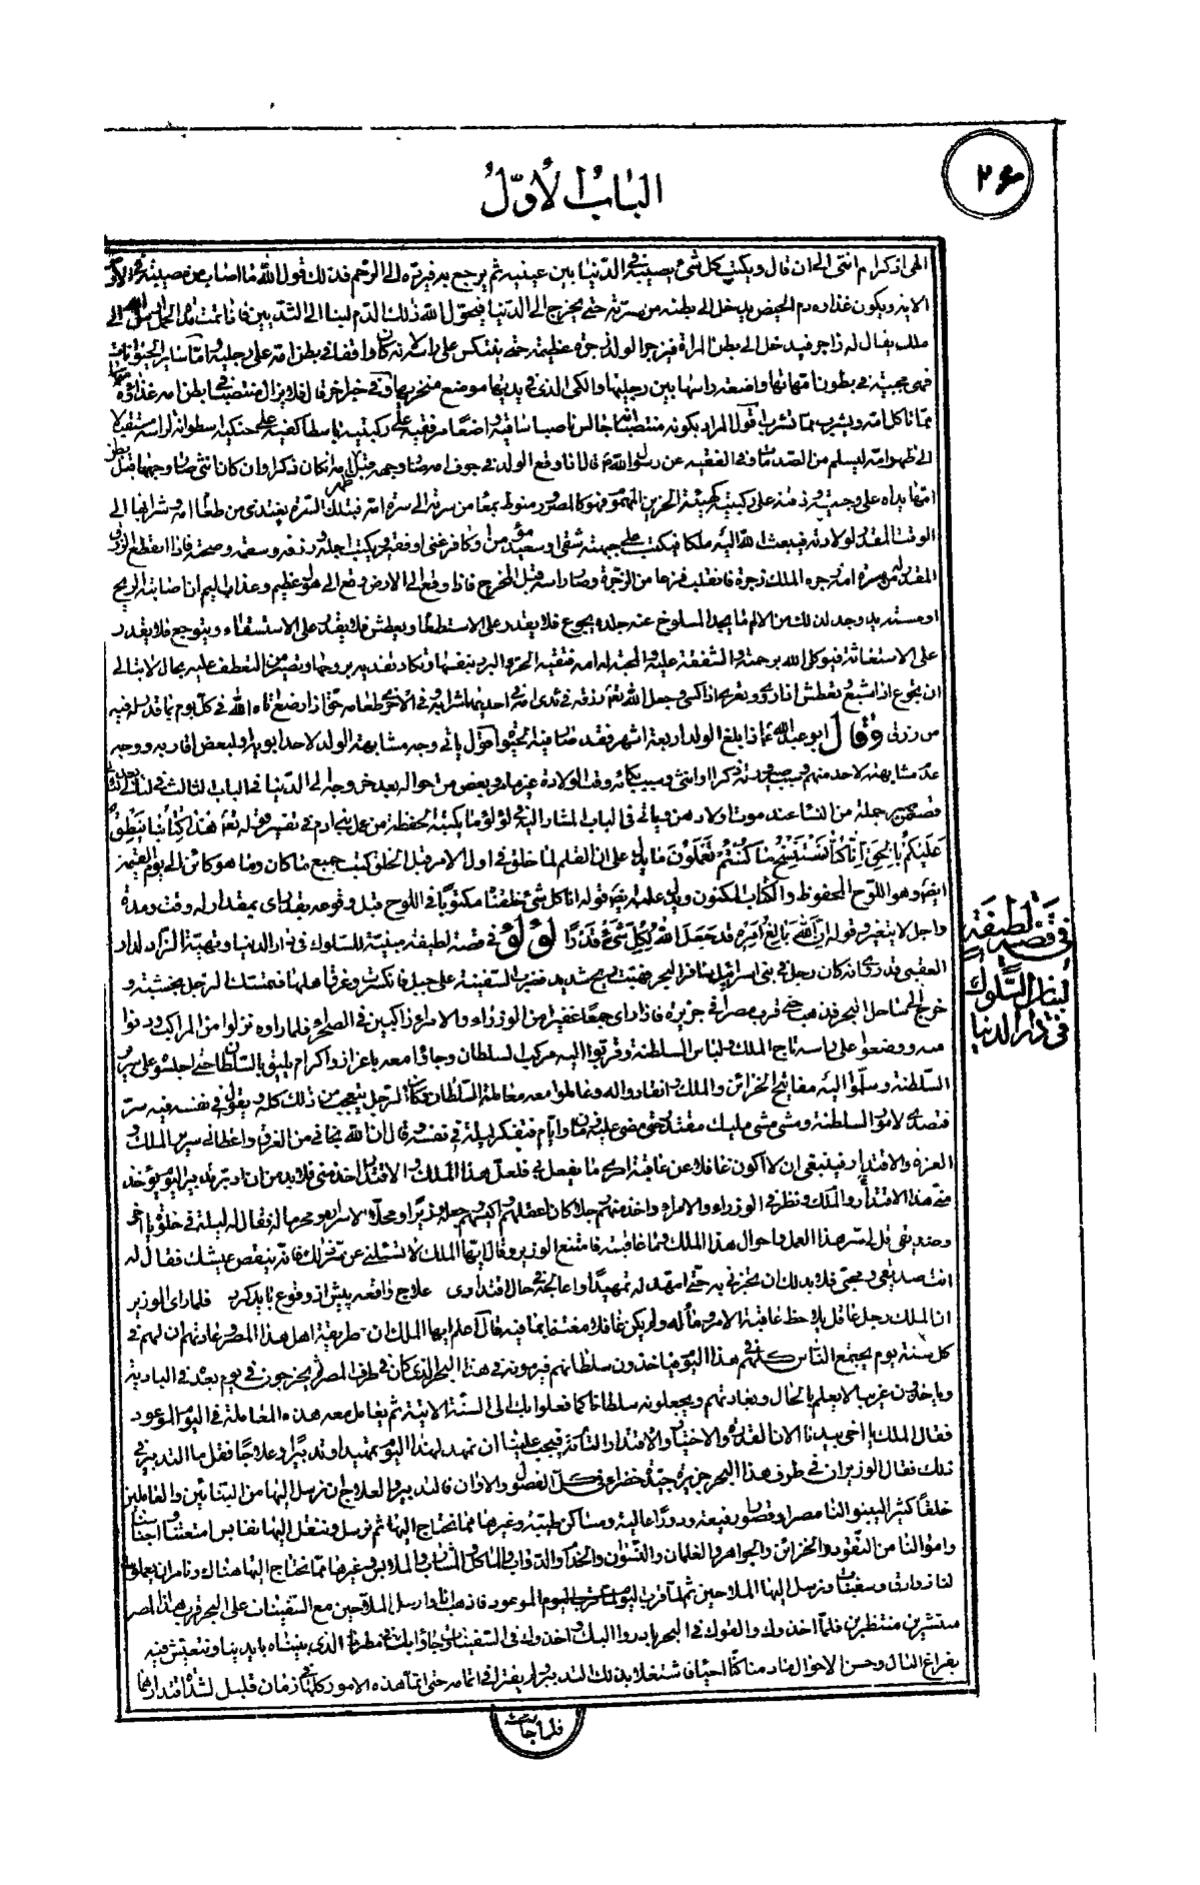 ٢٤
الباب الأوّل
الهى اذكر ام انثى الى ان قال ويكتب كل شئ يصيبه فى الدّنيا بين عينيه ثم يرجع به فيردّه الى الرّحم فذلك قول الله ما اصاب من مصيبة
الاية ويكون غذاؤه دم الحيض يدخل الى بطنه من سرّته حتى يخرج الى الدّنيا فيحوّل الله ذلك الدّم لبنا الى الثّديين فاذا تمت مدّة الحمل الى
ملك يقال له زاجر فيدخل الى بطن المراة فيزجر الولد زجرة عظيمة حتى ينتكس على راسه لانه كان واقفا فى بطن امه على رجليه وامّا ساير الحيوانات
فهى مجيبة فى بطون امّهاتها واضعة راسها بين رجليها والكىّ الذى فى يديها موضع منخريها وفى خبر اخر قال فلا يزال منتصبا فى بطن امه غذاؤه
ممّا تاكل امّه ويشرب ممّا تشرب قول المراد بكونه منتصبا انّه جالس ناصبا ساقيه واضعا مرفقيه على ركبتيه باسطا كفيه على حنكيه
الى ظهر امّه ليسلم من الصّدمات وفى الفقيه عن رسول الله قال اذا وقع الولد فى جوف امه صار وجهه قبل ظهر امه ان كان ذكرا وان كان انثى صار وجهها قبل بطن
امّها يداه على وجنتيه وذقنه على ركبتيه كهيئة الحزين المهموم فهو كالمصرور منوط بمعا من سرّته الى سرّة امّه فبتلك السّرّة يغتذى من طعام امّه وشرابها الى
الوقت المقدّر لولادته فيبعث الله اليه ملكا فيكتب على جبهته شقى او سعيد مؤمن او كافر غنى او فقير ويكتب اجله ورزقه وسقمه وصحته فاذا انقطع الرزق
المقدّر له من سرّة امّه زجره الملك زجرة فانقلب فزعا من الزّجرة وصار راسه قبل المخرج فاذا وقع الى الارض وقع الى هول عظيم وعذاب اليم ان اصابته الريح
او مسته يد وجد لذلك من الالم ما يجد المسلوخ عنه جلده يجوع فلا يقدر على الاستطعام ويعطش فلا يقدر على الاستسقاء ويتوجع فلا يقدر
على الاستغاثة فيوكل الله برحمته والشّفقة عليه والمحبة له امه فتقيه الحرّ والبرد بنفسها وتكاد تفديه بروحها وتصير من التعطف عليه بحال لا تبالى
ان تجوع اذا شبع وتعطش اذا روى وتعرى اذا كسى وجعل الله تعالى رزقه فى ثدى امّه فى احديهما شرابه وفى الاخرى طعامه حتى اذا رضع اتاه الله فى كل يوم بما قدّر له فيه
من رزق وقال ابو عبد الله اذا بلغ الولد اربعة اشهر فقد صار فيه الحيوة اقول ياتى وجه مشابهة الولد لاحد ابويه او لبعض اقاربه ووجه
عدم مشابهته لاحد منهم وسبب صيرورته ذكرا او انثى وسبب بكائه وقت الولادة وغيرها وبعض من احواله بعد خروجه الى الدّنيا فى الباب الثالث فى لئالى
قصص جملة من النساء عند موت اولادهن وياتى فى الباب المشار اليه فى لؤلؤ ما يكتبه الحفظة من عمل بنى ادم فى تفسير قوله تعالى هذا كتابنا ينطق
عليكم بالحقّ إنّا كنّا نستنسخ ما كنتم تعملون ما يدل على انّ القلم لما خلق فى اول الامر قبل الخلق كتب جميع ما كان وما هو كائن الى يوم القيمة
ايضا وهو اللّوح المحفوظ والكتاب المكنون ويدل عليه ايضا قوله انا كل شئ خلقناه مكتوبا فى اللوح قبل وقوعه بقدر اى بمقدار له وقت ومدة
واجل لا يتغير وقوله إنّ الله بالغ أمره قد جعل الله لكلّ شئ قدرا لؤلؤ فى قصة لطيفة مبيّنة للسّلوك فى دار الدنيا وتهيّة الزّاد لدار
العقبى قد روى انه كان رجل فى بنى اسرائيل سافر البحر فهبت ريح شديد فضرب السّفينة على جبل فانكسرت وغرق اهلها فتمسّك الرّجل بخشبة و
خرج الى ساحل البحر فذهب حتى قرب مصرا فى جزيرة فاذا راى جمعا غفيرا من الوزراء والامراء راكبين فى الصّحراء فلما راوه نزلوا من المراكب ودنوا
منه ووضعوا على راسه تاج الملك ولباس السلطنة وقربوا اليه مركب السلطان وجاؤا معه باعزاز واكرام يليق بالسّلطان حتى اجلسوه على سرير
السّلطنة وسلّموا اليه مفاتيح الخزائن والملك وانقادوا له وعاملوا معه معاملة السّلطان فكان الرّجل يتعجب من ذلك كله ويقول فى نفسه فيه سرّ
فتصدى لامور السلطنة ومشى مشى مليك مقتدر حتى مضى عليه زمان وايام فتفكّر ليلة فى نفسه وقال ان الله نجانى من الغرق واعطانى سرير الملك و
العزة والاقتدار فينبغى ان لا اكون غافلا عن عاقبة امرى ما يفعل بى فلعلّ هذا الملك والاقتدار اخذ منى فلا بد من ان ادبّر تدبيرا ليوم يؤخذ
منّى هذا الاقتدار والملك ونظر فى الوزراء والامراء واخذ منهم رجلا كان اعقلهم واكيسهم جعله وزيرا ومحلا لاسراره ومحرما له فقال له ليلة فى خلوة يا اخى
وصديقى قل لى سرّ هذا العمل واحوال هذا الملك وما عاقبته فامتنع الوزير وقال ايّها الملك لا تسئلنى عن سرّ ذلك فانه ينقص عيشك فقال له
انت صديقى ومحبّى فلا بد لك ان تخبرنى به حتى امهّد له تمهيدا واعالجه فى حال اقتدارى علاج واقعه پيش از وقوع بايد كرد فلما راى الوزير
انّ الملك رجل عاقل يلاحظ عاقبة الامر ومآله ولم يكن غافلا مغتما بما فيه قال اعلم ايها الملك ان طريقة اهل هذا المصر وعادتهم ان لهم فى
كل سنة يوم يجتمع النّاس كلهم فى هذا اليوم فياخذون سلطانهم فيرمونه فى هذا البحر الذى كان فى طرف المصر ويخرجون فى يوم بعده فى البادية
وياخذون غريبا لا يعلم بالحال وبعادتهم ويجعلونه سلطانا كما فعلوا بك الى السّنة الاتية ثم يعامل معه هذه المعاملة فى اليوم الموعود
فقال الملك يا اخى بيدنا الان القدرة والاختيار والاقتدار التّام فيجب علينا ان نمهد لهذا اليوم تمهيدا وتدبيرا وعلاجا فقل ما التدبير فى
ذلك فقال الوزير ان فى طرف هذا البحر جزيرة جيدة خضراء فى كلّ الفصول والاوان فالتدبير والعلاج ان نرسل اليها من البنّائين والعاملين
خلقا كثيرا ليبنوا لنا مصرا وقصورا رفيعة ودورا عالية ومساكن طيّبة وغيرها ممّا نحتاج اليها ثم نرسل وننقل اليها نفايس امتعتنا واجناسنا
واموالنا من النّقود والخزائن والجواهر والغلمان والنّسوان والخدم والدّواب والماكل والشّراب والملابس وغيرها ممّا نحتاج اليها هناك ونامر ان يعملوا
لنا زوارق وسفينات ونرسل اليها الملاحين ثم لمّا قرب اليوم الموعود فاذهب انا وارسل الملاحين مع السّفينات على البحر قرب هذا المصر
مستترين منتظرين فلمّا اخذوك والقوك فى البحر بادروا اليك واخذوك فى السّفينات وجاؤا بك الى مصرنا الذى بنيناه بايدينا ونتعيّش فيه
بفراغ البال وحسن الاحوال مادمنا كنّا احياء فاشتغلا بذلك التدبير ولم يفترا فى اتمامه حتى اتمّا هذه الامور كلّها فى زمان قليل لشدّة اقتدارهما
فى قصّة لطيفة
لبيان السّلوك
فى دار الدنيا
فلما جائت